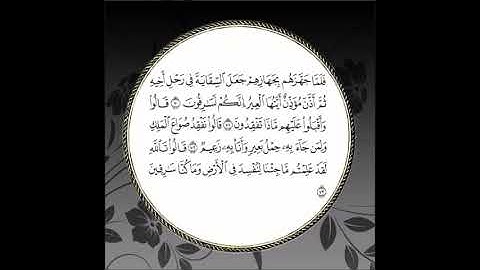 فَلَمَّا جَهَّزَهُم بِجَهَازِهِمْ جَعَلَ السِّقَايَةَ فِي رَحْلِ أَخِيهِ
ثُمَّ أَذَّنَ مُؤَذِّنٌ أَيَّتُهَا الْعِيرُ إِنَّكُمْ لَسَارِقُونَ ۝٧٠ قَالُوا
وَأَقْبَلُوا عَلَيْهِم مَّاذَا تَفْقِدُونَ ۝٧١ قَالُوا نَفْقِدُ صُوَاعَ الْمَلِكِ
وَلِمَن جَاءَ بِهِ حِمْلُ بَعِيرٍ وَأَنَا بِهِ زَعِيمٌ ۝٧٢ قَالُوا تَاللَّهِ
لَقَدْ عَلِمْتُم مَّا جِئْنَا لِنُفْسِدَ فِي الْأَرْضِ وَمَا كُنَّا سَارِقِينَ
۝٧٣